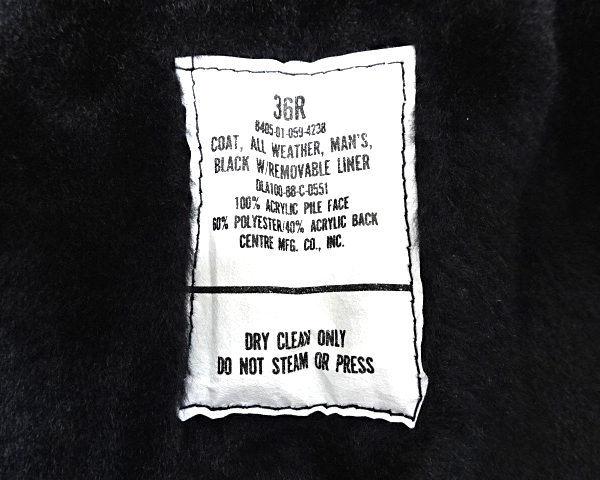 36R
8405-01-059-4238
COAT, ALL WEATHER, MAN'S,
BLACK W/REMOVABLE LINER
DLA100-88-C-0551
100% ACRYLIC PILE FACE
60% POLYESTER/40% ACRYLIC BACK
CENTRE MFG. CO., INC.
DRY CLEAN ONLY
DO NOT STEAM OR PRESS